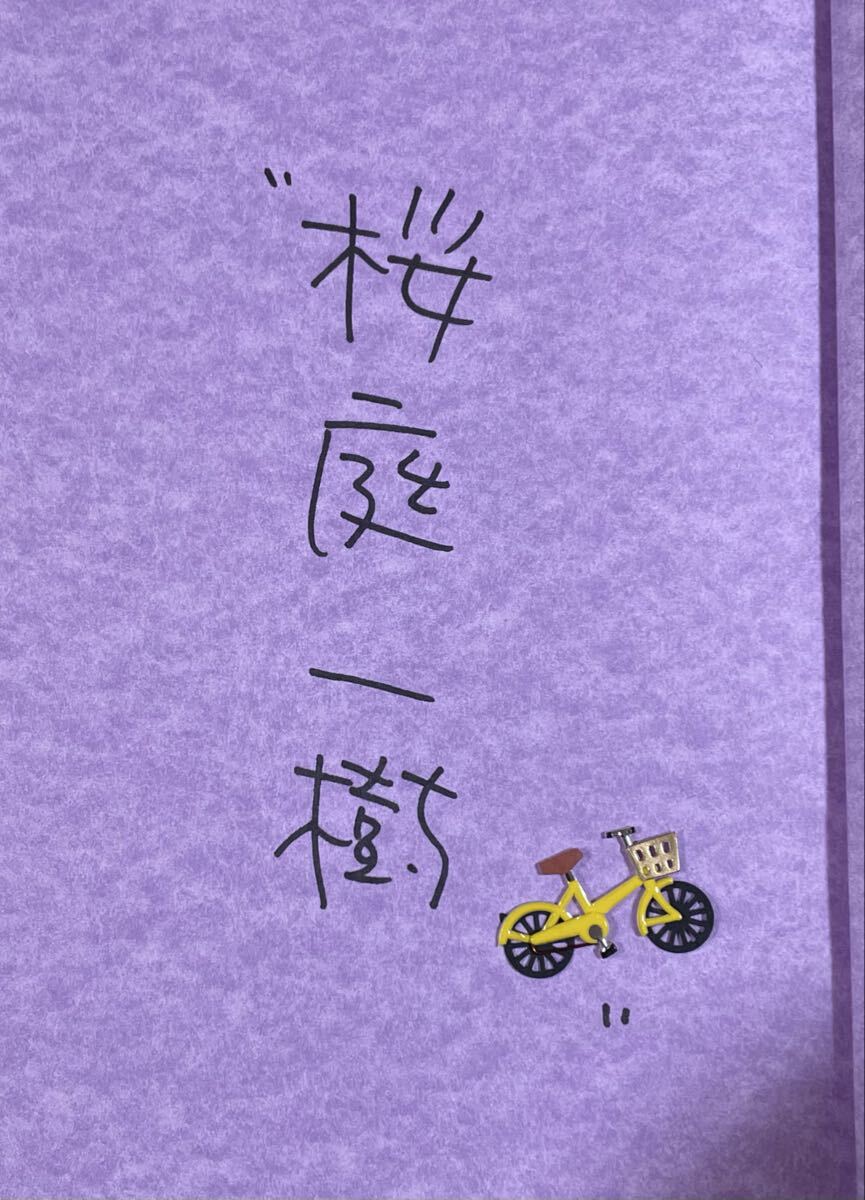 "桜庭一樹"